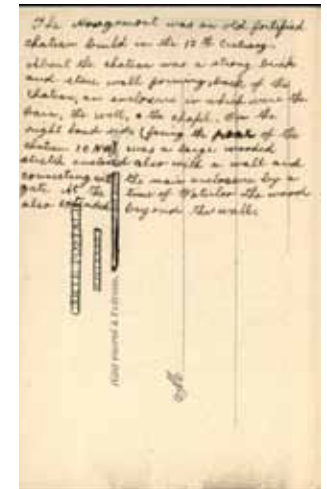 The Hougomont was an old fortified
chateau build in the 12 th Century.
About the chateau was a strong brick
and stone wall forming back of the
chateau, an enclosure in which were the
barn, the well, & the chapel. On the
right hand side (facing the rear of the
chateau was a large wooded
stretch enclosed also with a wall and
connecting with the main enclosure by a
gate. At the time of Waterloo the wood
also extended beyond the wall.